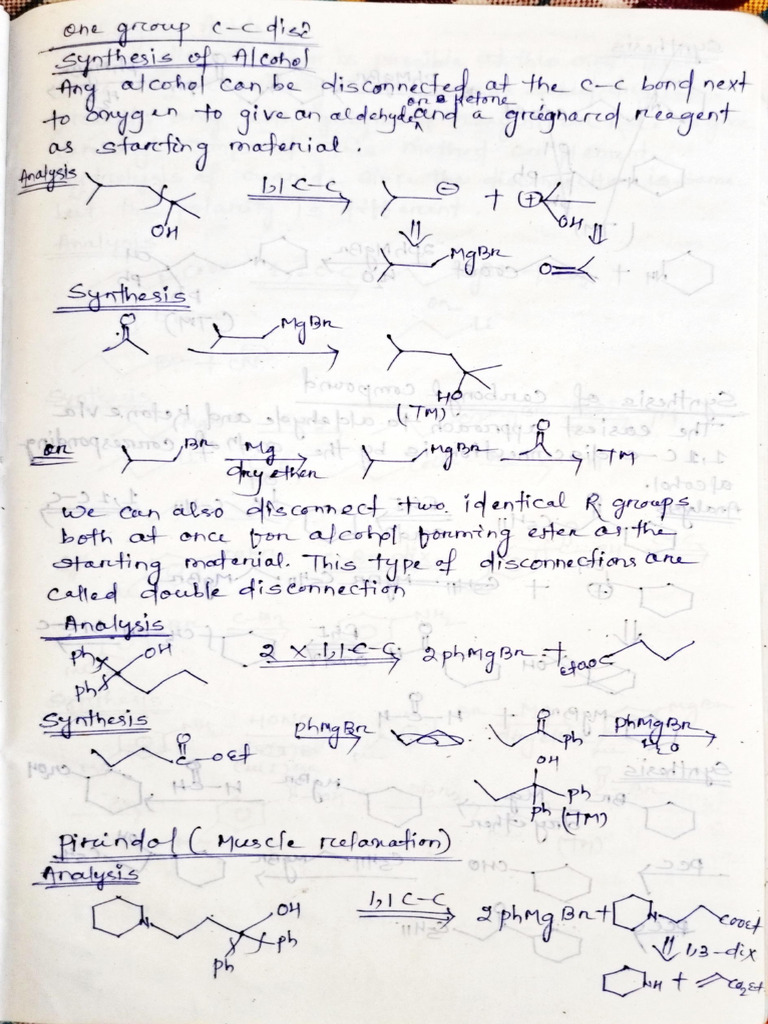 one group C-C disc
Synthesis of Alcohol
Any alcohol can be disconnected at the C-C bond next
to oxygen to give an aldehyde or a ketone and a grignard reagent
as starting material.
Analysis
1,1 C-C
⊖ + ⊕
OH
OH
MgBr
O
Synthesis
O
MgBr
HO
(TM)
or
Br
Mg
dry ether
MgBr
O
TM
We can also disconnect two identical R groups
both at once for alcohol forming ester as the
starting material. This type of disconnections are
called double disconnection
Analysis
Ph
OH
Ph
2 x 1,1-C-C
2 phMgBr +
EtOOC
Synthesis
O
C-OEt
phMgBr
O
Ph
phMgBr
H2O
OH
Ph
Ph
(TM)
Pirindol (Muscle relaxation)
Analysis
N
OH
Ph
Ph
1,1 C-C
2 phMgBr +
N
COOEt
1,3-dix
NH +
CO2Et